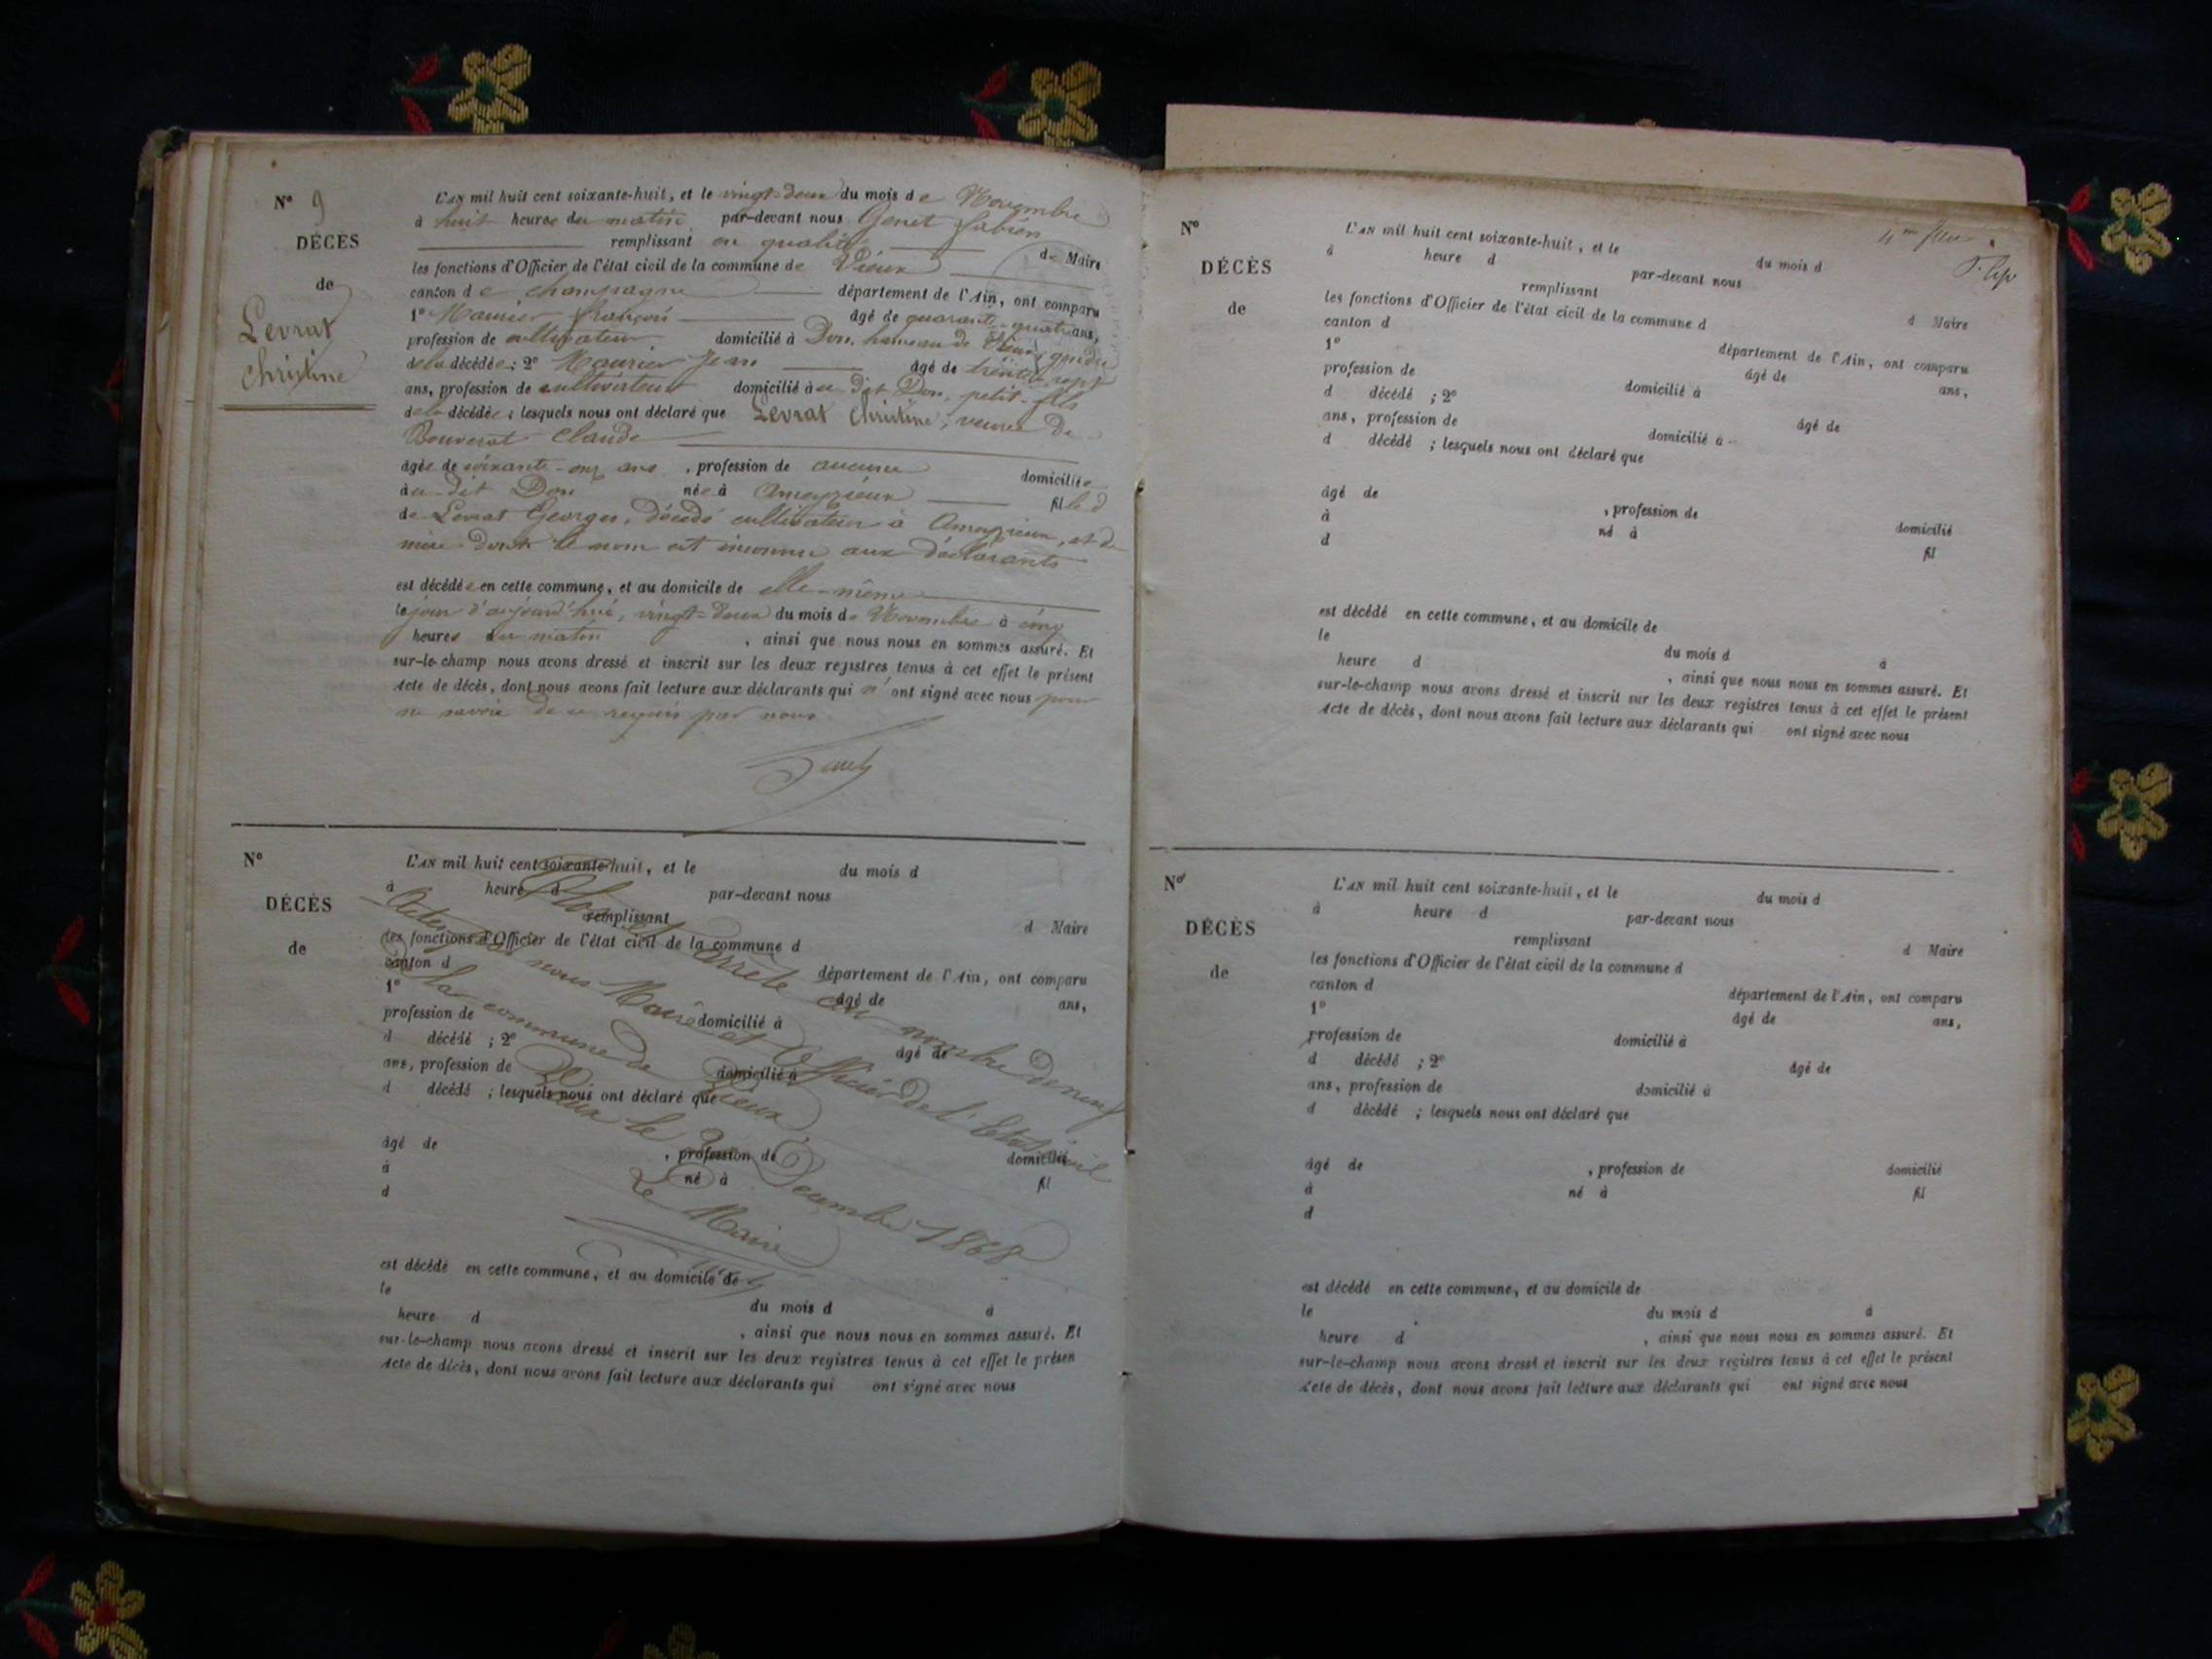 N° 9
DÉCÈS
de
Levrat
Christine
L'AN mil huit cent soixante-huit, et le vingt-deux du mois de Novembre
à huit heures du matin par-devant nous Genet fabien
remplissant en qualité de Maire
les fonctions d'Officier de l'état civil de la commune de Vieux
canton de champagne département de l'Ain, ont comparu
1° Maurier françois âgé de quarante-quatre ans,
profession de cultivateur domicilié à Don, hameau de Vieux, gendre
de la décédée ; 2° Maurier Jean âgé de trente sept
ans, profession de cultivateur domicilié au dit Don, petit-fils
de la décédée ; lesquels nous ont déclaré que Levrat Christine, veuve de
Bouverat Claude
âgée de soixante-onze ans , profession de aucune domiciliée
au dit Don née à Ameyzieux fille d
de Levrat Georges, décédé cultivateur à Ameyzieux, et de
mère dont le nom est inconnu aux déclarants
est décédée en cette commune, et au domicile de elle-même
le jour d'aujourd'hui, vingt-deux du mois de Novembre à cinq
heures du matin , ainsi que nous nous en sommes assuré. Et
sur-le-champ nous avons dressé et inscrit sur les deux registres tenus à cet effet le présent
Acte de décès, dont nous avons fait lecture aux déclarants qui n'ont signé avec nous pour
ne savoir de ce requis par nous
N°
DÉCÈS
de
L'AN mil huit cent soixante-huit, et le du mois d
à heure d par-devant nous
remplissant d Maire
les fonctions d'Officier de l'état civil de la commune d
canton d département de l'Ain, ont comparu
1° âgé de ans,
profession de domicilié à
d décédé ; 2° âgé de
ans, profession de domicilié à
d décédé ; lesquels nous ont déclaré que
âgé de , profession de domicilié
à né à fil
d
est décédé en cette commune, et au domicile de
le du mois d à
heure d , ainsi que nous nous en sommes assuré. Et
sur-le-champ nous avons dressé et inscrit sur les deux registres tenus à cet effet le présen
Acte de décès, dont nous avons fait lecture aux déclarants qui ont signé avec nous
Clos et arrêté au nombre de neuf
Actes par nous Maire et Officier de l'Etat civil
de la commune de Vieux
Vieux le Décembre 1868
Le Maire
N°
DÉCÈS
de
L'AN mil huit cent soixante-huit, et le du mois d
à heure d par-devant nous
remplissant d Maire
les fonctions d'Officier de l'état civil de la commune d
canton d département de l'Ain, ont comparu
1° âgé de ans,
profession de domicilié à
d décédé ; 2° âgé de
ans, profession de domicilié à
d décédé ; lesquels nous ont déclaré que
âgé de , profession de domicilié
à né à fil
d
est décédé en cette commune, et au domicile de
le du mois d à
heure d , ainsi que nous nous en sommes assuré. Et
sur-le-champ nous avons dressé et inscrit sur les deux registres tenus à cet effet le présent
Acte de décès, dont nous avons fait lecture aux déclarants qui ont signé avec nous
N°
DÉCÈS
de
L'AN mil huit cent soixante-huit, et le du mois d
à heure d par-devant nous
remplissant d Maire
les fonctions d'Officier de l'état civil de la commune d
canton d département de l'Ain, ont comparu
1° âgé de ans,
profession de domicilié à
d décédé ; 2° âgé de
ans, profession de domicilié à
d décédé ; lesquels nous ont déclaré que
âgé de , profession de domicilié
à né à fil
d
est décédé en cette commune, et au domicile de
le du mois d à
heure d , ainsi que nous nous en sommes assuré. Et
sur-le-champ nous avons dressé et inscrit sur les deux registres tenus à cet effet le présent
Acte de décès, dont nous avons fait lecture aux déclarants qui ont signé avec nous